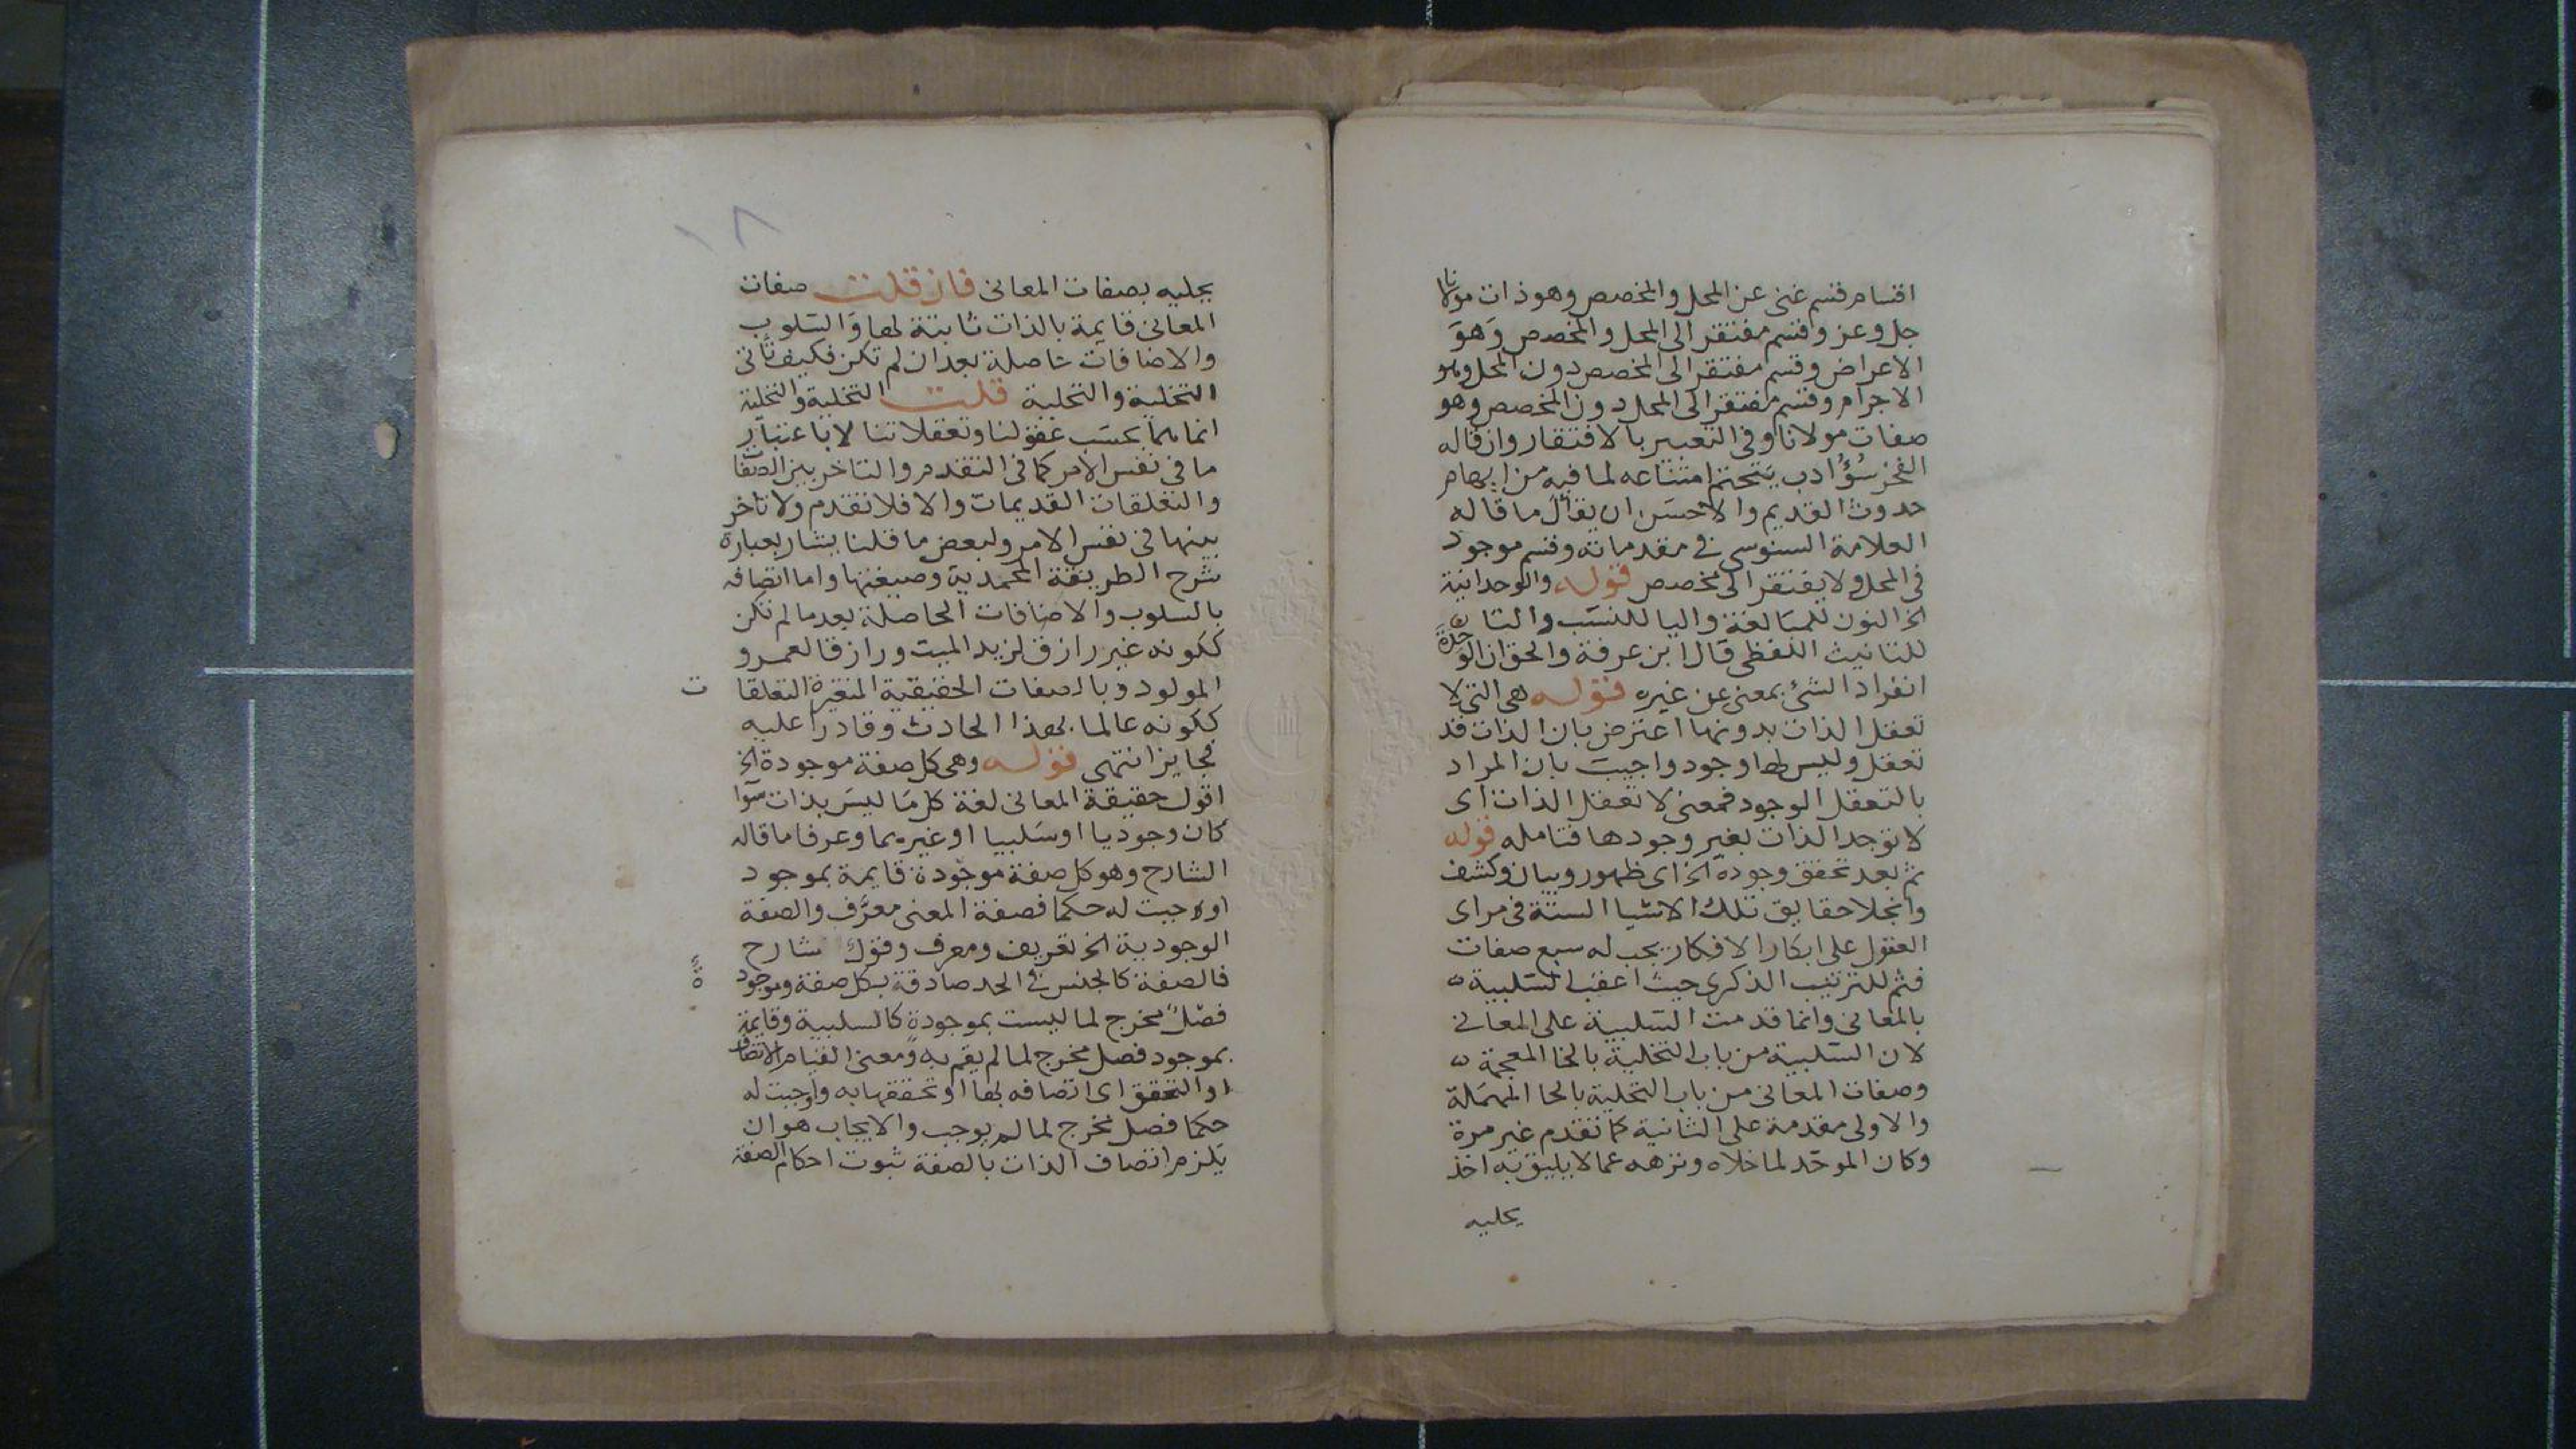 اقسام قسم غنى عن المحل والمخصص وهو ذات مولانا
جل وعز وقسم مفتقر الى المحل والمخصص وهو
الاعراض وقسم مفتقر الى المخصص دون المحل وهو
الاجرام وقسم مفتقر الى المحل دون المخصص وهو
صفات مولانا وفى التعبير بالافتقار وان قاله
الفخر سؤ ادب يتحتم امتناعه لما فيه من ايهام
حدوث القديم والاحسن ان يقال ما قاله
العلامة السنوسى فى مقدماته وقسم موجود
فى المحل ولا يفتقر الى مخصص قوله والوحدانية
الخ النون للمبالغة واليا للنسب والتا
للتانيث اللفظى قال ابن عرفة والحق ان الوحدة
انفراد الشئ بمعنى عن غيره قوله هى التى لا
تعقل الذات بدونها اعترض بان الذات قد
تعقل وليس لها وجود واجيب بان المراد
بالتعقل الوجود فمعنى لا تعقل الذات اى
لا توجد الذات بغير وجودها فتامله قوله
ثم بعد تحقق وجوده الخ اى ظهور وبيان وكشف
وانجلا حقايق تلك الاشيا الستة فى مراى
العقول على ابكار الافكار يجب له سبع صفات
فثم للترتيب الذكرى حيث اعقب السلبية
بالمعانى وانما قدمت السلبية على المعانى
لان السلبية من باب التخلية بالخا المعجمة
وصفات المعانى من باب التحلية بالحا المهملة
والاولى مقدمة على الثانية كما تقدم غير مرة
وكان الموحد لما خلاه ونزهه عما لا يليق به اخذ
يحليه
١٨
يحليه بصفات المعانى فان قلت صفات
المعانى قايمة بالذات ثابتة لها والسلوب
والاضافات حاصلة بعد ان لم تكن فكيف تاتى
التخلية والتحلية قلت التخلية والتحلية
انما هما بحسب عقولنا وتعقلاتنا لا باعتبار
ما فى نفس الامر كما فى التقدم والتاخر بين الصفات
والتعلقات القديمات والا فلا تقدم ولا تاخر
بينها فى نفس الامر ولبعض ما قلنا يشار بعبارة
شرح الطريقة المحمدية وصيغتها واما اتصافه
بالسلوب والاضافات الحاصلة بعد ما لم تكن
ككونه غير رازق لزيد الميت ورازقا لعمرو
المولود وبالصفات الحقيقية المتغيرة التعلقات
ككونه عالما بهذا الحادث وقادرا عليه
فجايز انتهى قوله وهى كل صفة موجودة الخ
اقول حقيقة المعانى لغة كل ما ليس بذات سوا
كان وجوديا او سلبيا او غيرهما وعرفا ما قاله
الشارح وهو كل صفة موجودة قايمة بموجود
اوجبت له حكما فصفة المعنى معرف والصفة
الوجودية الخ تعريف ومعرف وقول شارح
فالصفة كالجنس فى الحد صادقة بكل صفة وموجودة
فصل مخرج لما ليست بموجودة كالسلبية وقايمة
بموجود فصل مخرج لما لم يقم به ومعنى القيام الاتصاف
او التحقق اى اتصافه بها او تحققها به واوجبت له
حكما فصل مخرج لما لم يوجب والايجاب هو ان
يلزم اتصاف الذات بالصفة ثبوت احكام الصفة